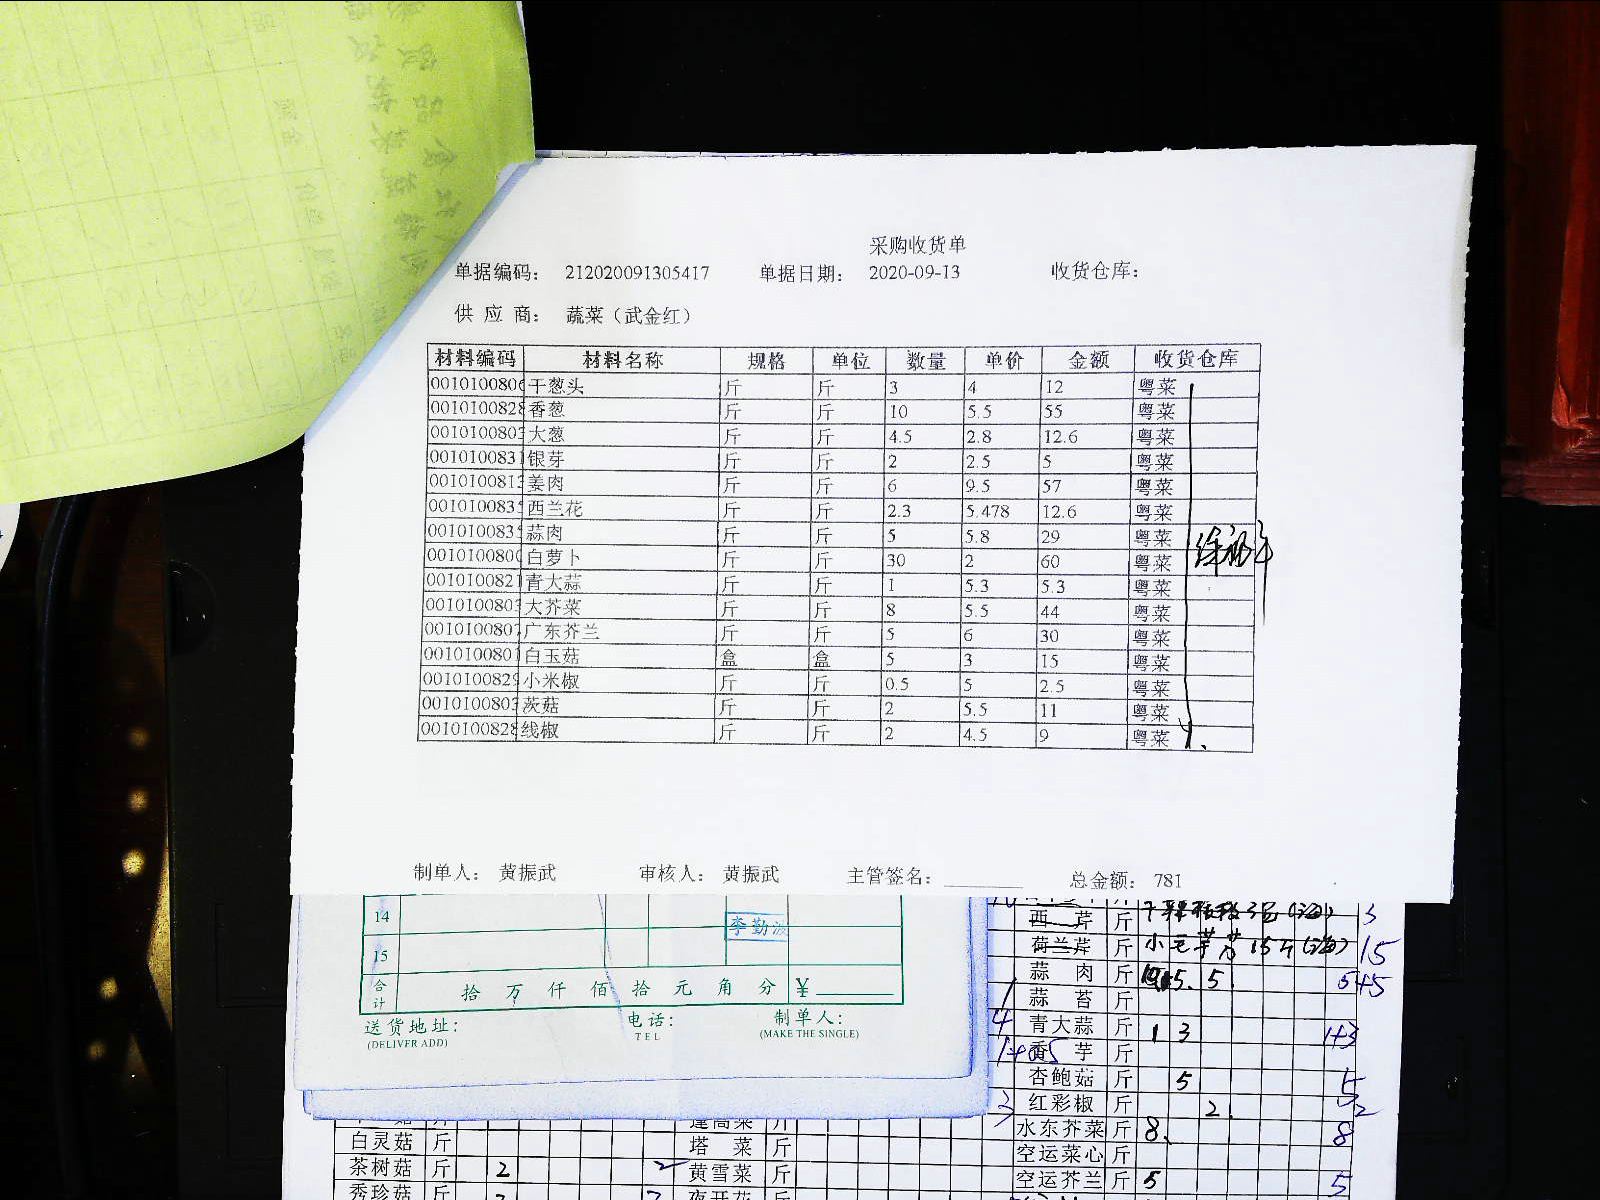 采购收货单
单据编码： 212020091305417 单据日期： 2020-09-13 收货仓库：
供 应 商： 蔬菜（武金红）
材料编码 材料名称 规格 单位 数量 单价 金额 收货仓库
0010100806 干葱头 斤 斤 3 4 12 粤菜
0010100828 香葱 斤 斤 10 5.5 55 粤菜
001010080 大葱 斤 斤 4.5 2.8 12.6 粤菜
0010100831 银芽 斤 斤 2 2.5 5 粤菜
001010081 姜肉 斤 斤 6 9.5 57 粤菜
001010083 西兰花 斤 斤 2.3 5.478 12.6 粤菜
001010083 蒜肉 斤 斤 5 5.8 29 粤菜
001010080 白萝卜 斤 斤 30 2 60 粤菜
0010100821 青大蒜 斤 斤 1 5.3 5.3 粤菜
001010080 大芥菜 斤 斤 8 5.5 44 粤菜
001010080 广东芥兰 斤 斤 5 6 30 粤菜
0010100801 白玉菇 盒 盒 5 3 15 粤菜
001010082 小米椒 斤 斤 0.5 5 2.5 粤菜
001010080 茨菇 斤 斤 2 5.5 11 粤菜
0010100828 线椒 斤 斤 2 4.5 9 粤菜
制单人： 黄振武 审核人： 黄振武 主管签名： 总金额： 781
14 李勤波
15
合计 拾 万 仟 佰 拾 元 角 分 ¥
送货地址： 电话： 制单人：
(DELIVER ADD) TEL (MAKE THE SINGLE)
西 芹 斤 3
荷兰芹 斤 小毛芋艿15斤 15
蒜 肉 斤 5. 5
蒜 苔 斤
青大蒜 斤 1 3 1+3
香 芋 斤
杏鲍菇 斤 5 5
红彩椒 斤 2 2
水东芥菜 斤 8 8
空运菜心 斤
空运芥兰 斤 5 5
白灵菇 斤 塔 菜 斤
茶树菇 斤 2 2 黄雪菜 斤
秀珍菇 斤